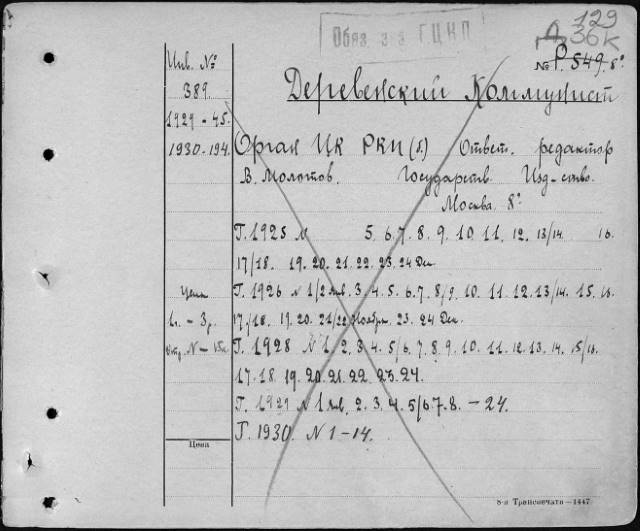 129
Обяз. экз ГЦКП
Д 36к
№ Р. 549. 8°
Инв. №
389.
1929 - 45.
1930 - 194.
Деревенский Коммунист
Орган ЦК РКП (б.) Ответ. редактор
В. Молотов. Государств. Изд-ство.
Москва 8°
Г. 1925 N 5. 6. 7. 8. 9. 10. 11. 12. 13/14. 16.
17/18. 19. 20. 21. 22. 23. 24 Дек.
Цена
Г. 1926 N 1/2 янв. 3. 4. 5. 6. 7. 8/9. 10. 11. 12. 13/14. 15. 16.
17/18. 19. 20. 21/22 Ноябрь. 23. 24 Дек.
Г. 1928 N 1. 2. 3. 4. 5/6. 7. 8. 9. 10. 11. 12. 13. 14. 15/16.
17. 18. 19. 20. 21. 22. 23. 24.
Г. 1929 N 1 янв. 2. 3. 4. 5/6 7. 8. — 24.
Г. 1930. N 1 - 14.
Цена
8-я Транспечати—1447